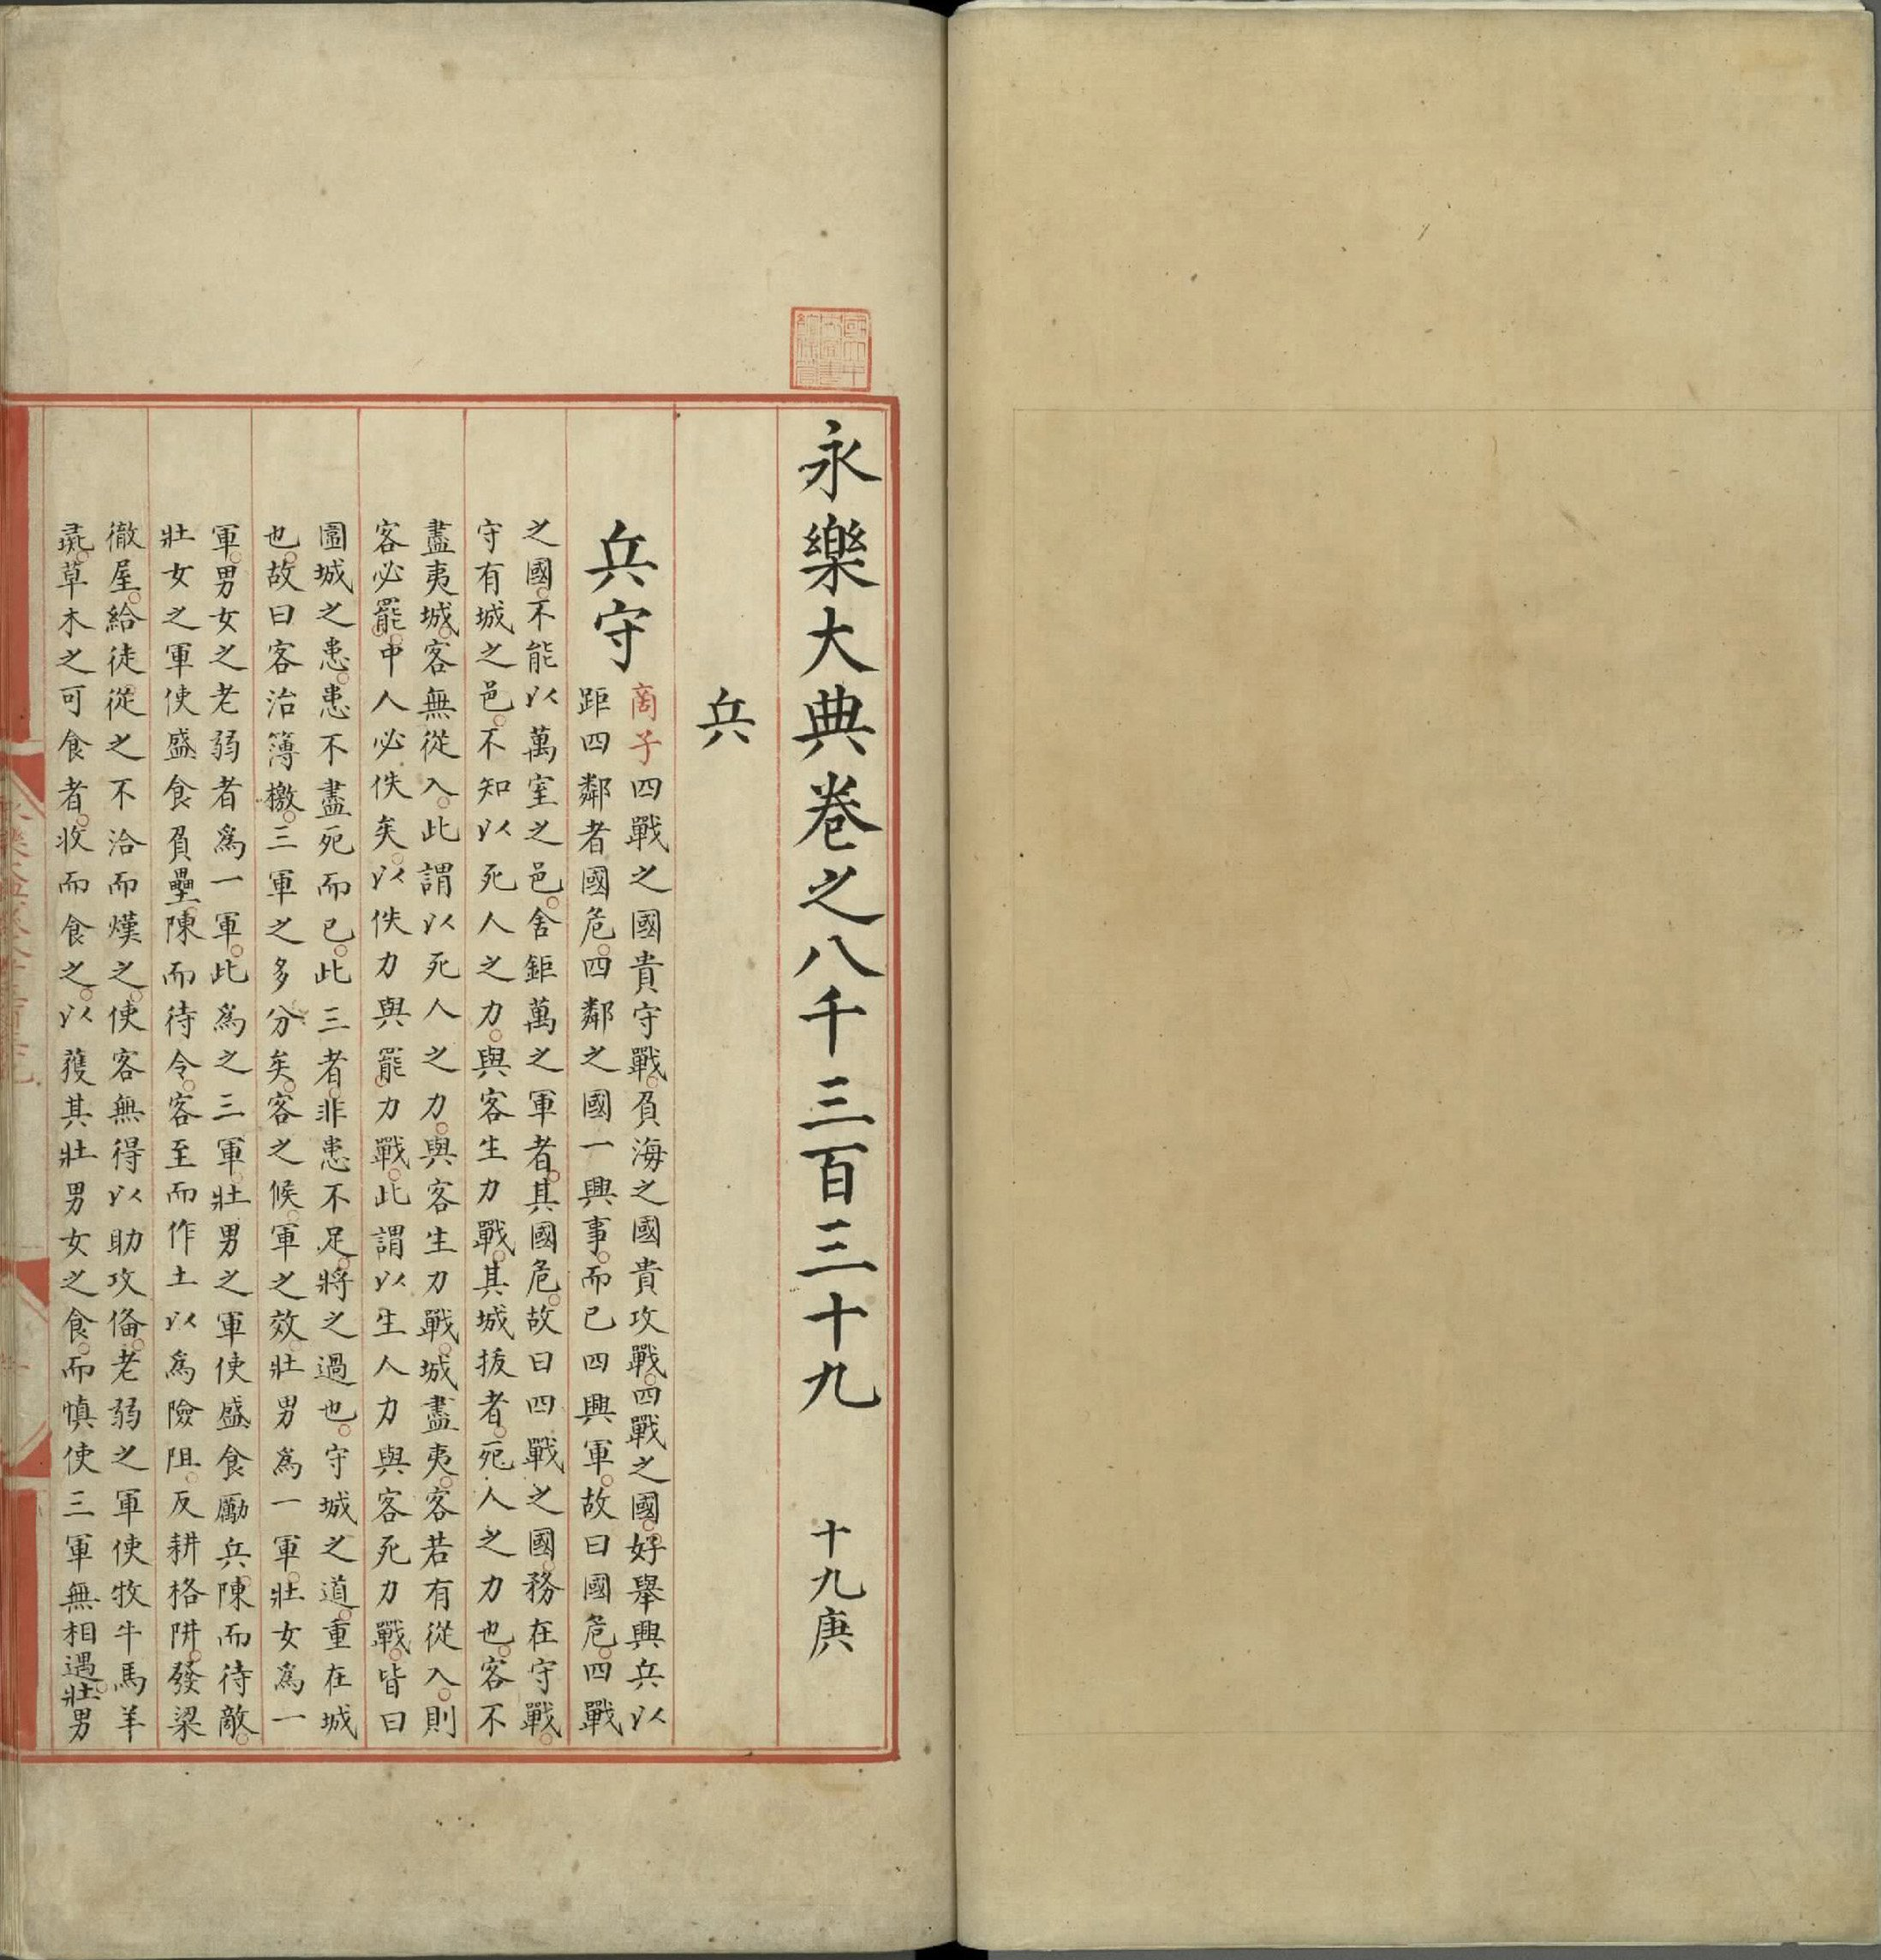 永樂大典卷之八千三百三十九 十九庚
兵
兵守
商子四戰之國貴守戰負海之國貴攻戰四戰之國好舉興兵以
距四鄰者國危四鄰之國一興事而已四興軍故曰國危四戰
之國不能以萬室之邑舍鉅萬之軍者其國危故曰四戰之國務在守戰
守有城之邑不知以死人之力與客生力戰其城拔者死人之力也客不
盡夷城客無從入此謂以死人之力與客生力戰城盡夷客若有從入則
客必罷中人必佚矣以佚力與罷力戰此謂以生人力與客死力戰皆曰
圍城之患患不盡死而已此三者非患不足將之過也守城之道重在城
也故曰客治簿檄三軍之多分矣客之候軍之效壯男爲一軍壯女爲一
軍男女之老弱者爲一軍此爲之三軍壯男之軍使盛食勵兵陳而待敵
壯女之軍使盛食負壘陳而待令客至而作土以爲險阻反耕格阱發梁
徹屋給徒從之不洽而熯之使客無得以助攻僃老弱之軍使牧牛馬羊
彘草木之可食者收而食之以獲其壯男女之食而慎使三軍無相遇壯男